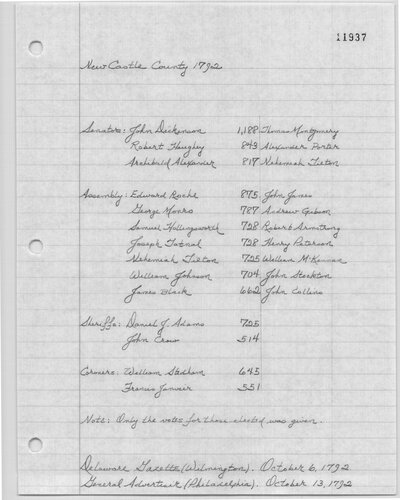 11937
New Castle County 1792
Senators: John Dickenson 1,188 Thomas Montgomery
Robert Haughey 843 Alexander Porter
Archibald Alexander 817 Nehemiah Tilton
Assembly: Edward Roche 875 John James
George Monro 787 Andrew Gibson
Samuel Hollingsworth 728 Robert Armstrong
Joseph Tatnal 728 Henry Peterson
Nehemiah Tilton 725 William McKennan
William Johnson 704 John Stockton
James Black 662 John Collins
Sheriffs: Daniel J. Adams 725
John Crow 514
Coroners: William Stedham 645
Francis Janvier 551
Note: Only the votes for those elected was given.
Delaware Gazette (Wilmington). October 6, 1792
General Advertiser (Philadelphia). October 13, 1792